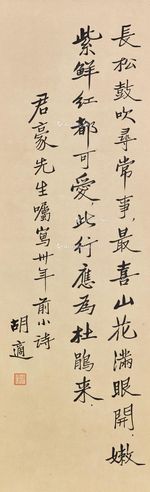 長松鼓吹尋常事,最喜山花滿眼開,嫩
紫鮮紅都可愛,此行應為杜鵑來.
君豪先生囑寫卅年前小诗
胡適